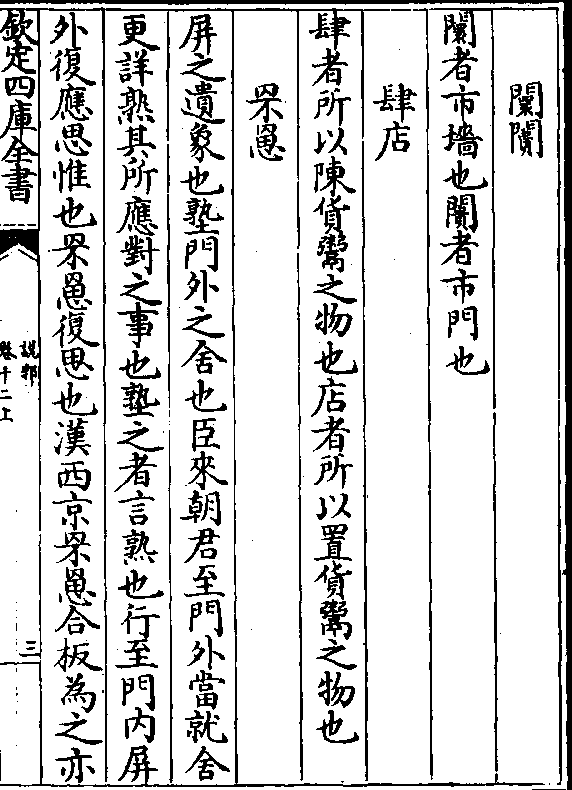 闤闠
闤者市墻也闠者市門也
肆店
肆者所以陳貨鬻之物也店者所以置貨鬻之物也
罘罳
屏之遺象也塾門外之舍也臣來朝君至門外當就舍
更詳熟其所應對之事也塾之者言熟也行至門内屏
外復應思惟也罘罳復思也漢西京罘罳合板為之亦
欽定四庫全書
說郛
卷十二上
三